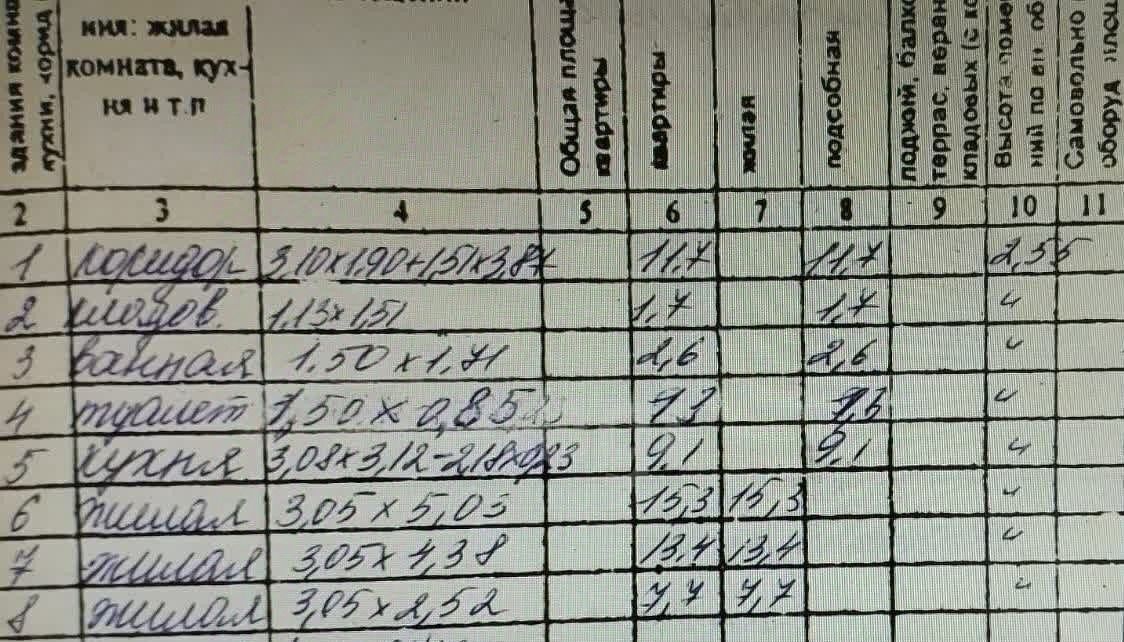 здания комна
кухни, корид
ния: жилая
комната, кух-
ня и т.п
Общая площа
квартиры
квартиры
жилая
подсобная
лоджий, балко
террас, веран
кладовых (с ко
Высота поме
ний по вн об
Самовольно
оборуд площ
2 3 4 5 6 7 8 9 10 11
1 коридор 3,10х1,90+1,51х3,87 11,7 11,7 2,55
2 кладов. 1.13х1,51 1,7 1,7 "
3 ванная 1.50х1.71 2,6 2,6 "
4 туалет 1,50х0,85 1,3 1,3 "
5 кухня 3,08х3,12-2,18х0,23 9.1 9.1 "
6 жилая 3,05х5,03 15,3 15,3 "
7 жилая 3,05х4,38 13,4 13,4 "
8 жилая 3,05х2,52 7,7 7,7 "